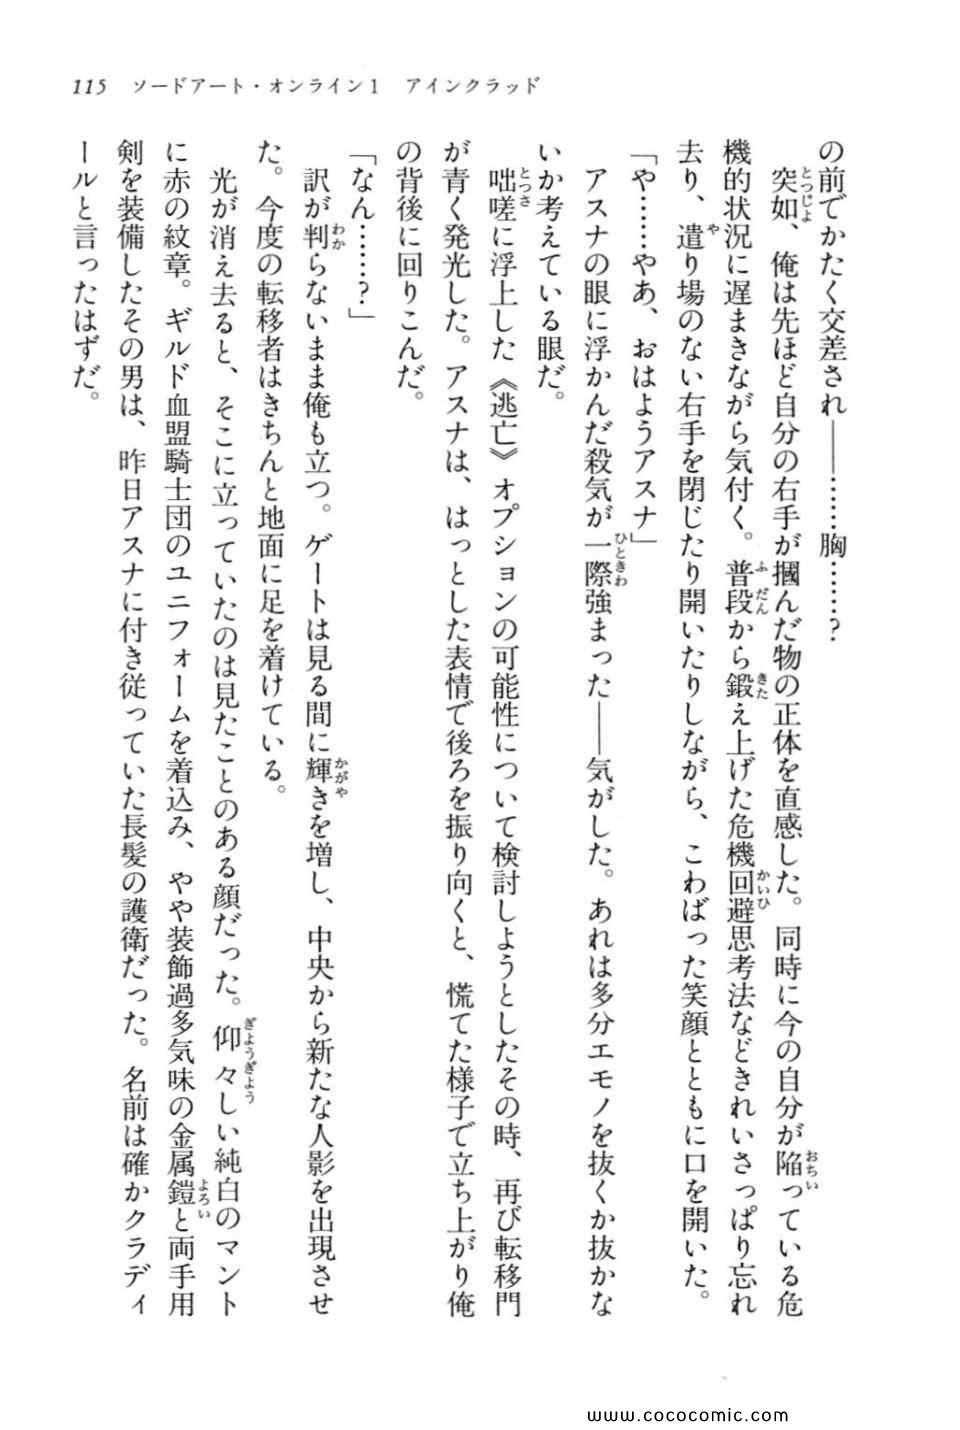 115　ソードアート・オンライン1　アインクラッド
の前でかたく交差され――……胸……？
　突如、俺は先ほど自分の右手が摑んだ物の正体を直感した。同時に今の自分が陥っている危
機的状況に遅まきながら気付く。普段から鍛え上げた危機回避思考法などきれいさっぱり忘れ
去り、遣り場のない右手を閉じたり開いたりしながら、こわばった笑顔とともに口を開いた。
「や……やあ、おはようアスナ」
　アスナの眼に浮かんだ殺気が一際強まった――気がした。あれは多分エモノを抜くか抜かな
いか考えている眼だ。
　咄嗟に浮上した《逃亡》オプションの可能性について検討しようとしたその時、再び転移門
が青く発光した。アスナは、はっとした表情で後ろを振り向くと、慌てた様子で立ち上がり俺
の背後に回りこんだ。
「なん……？」
　訳が判らないまま俺も立つ。ゲートは見る間に輝きを増し、中央から新たな人影を出現させ
た。今度の転移者はきちんと地面に足を着けている。
　光が消え去ると、そこに立っていたのは見たことのある顔だった。仰々しい純白のマント
に赤の紋章。ギルド血盟騎士団のユニフォームを着込み、やや装飾過多気味の金属鎧と両手用
剣を装備したその男は、昨日アスナに付き従っていた長髪の護衛だった。名前は確かクラディ
ールと言ったはずだ。
www.cococomic.com